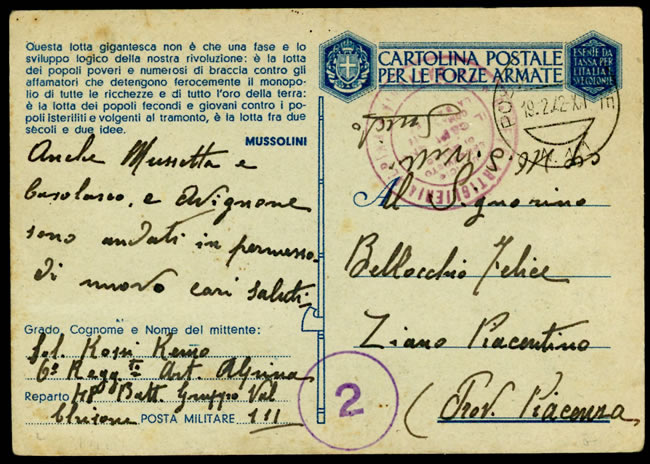 Questa lotta gigantesca non è che una fase e lo
sviluppo logico della nostra rivoluzione: è la lotta
dei popoli poveri e numerosi di braccia contro gli
affamatori che detengono ferocemente il monopo-
lio di tutte le ricchezze e di tutto l'oro della terra:
è la lotta dei popoli fecondi e giovani contro i po-
poli isteriliti e volgenti al tramonto, è la lotta fra due
sècoli e due idee.
MUSSOLINI
Anche Mussotta e
Casolasco, e Avignone
sono andati in permesso.
Di nuovo cari saluti,
Grado, Cognome e Nome del mittente:
Sol. Rossi Remo
6º Regg.to Art. Alpina
Reparto 48º Batt. Gruppo Val
Chisone POSTA MILITARE 111
CARTOLINA POSTALE
PER LE FORZE ARMATE
ESENTE DA
TASSA PER
L'ITALIA E
SUE COLONIE
19.2.42-XX
ARTIGLIERIA
Al Signorino
Bellocchio Felice
Ziano Piacentino
(Prov. Piacenza
2